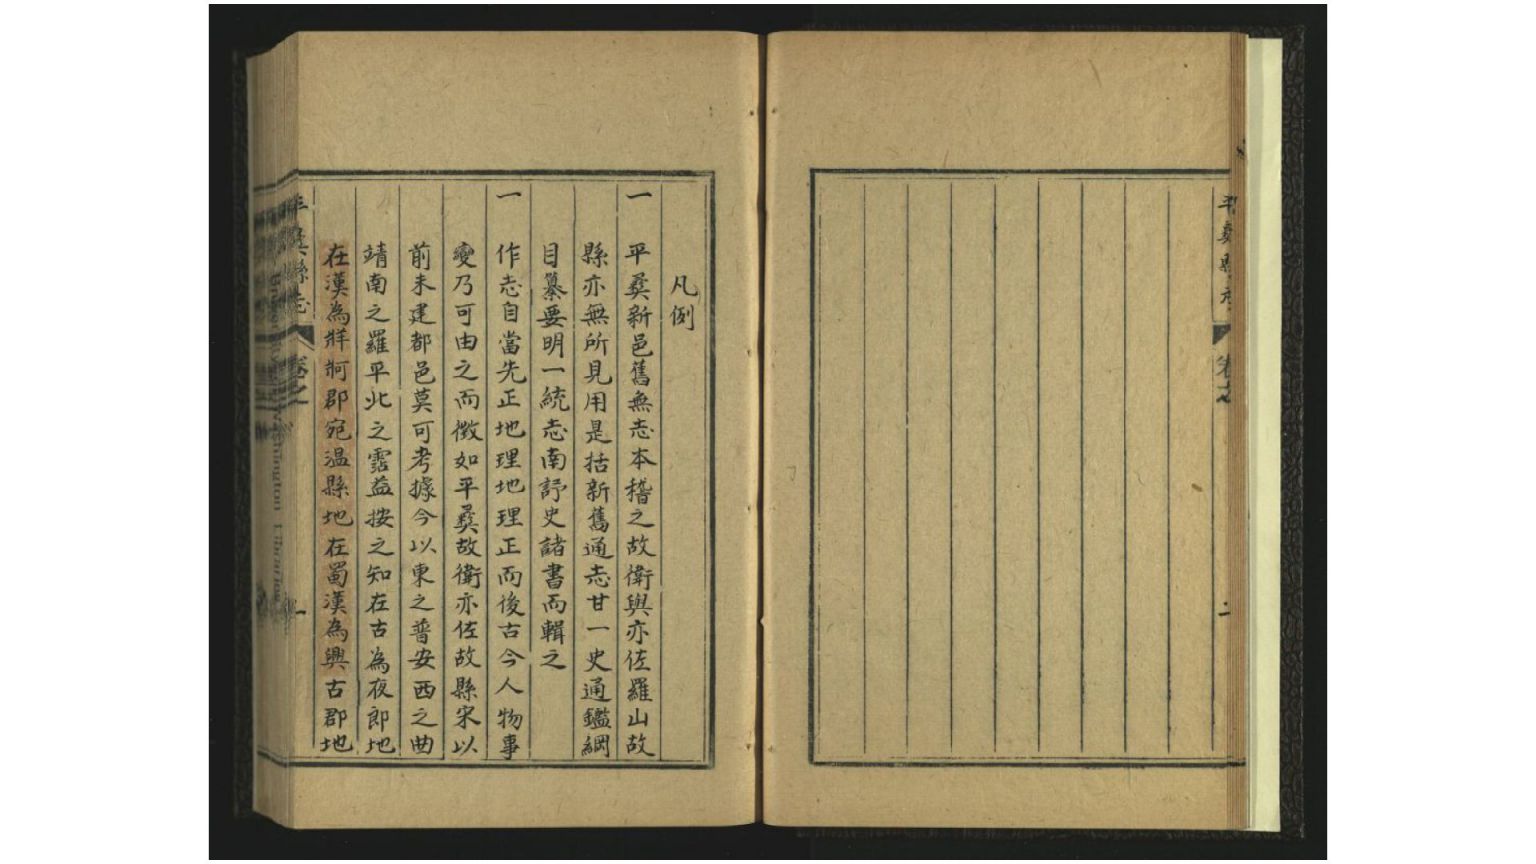 平彝縣志
卷之
二
凡例
一 平彝新邑舊無志本稽之故衛與亦佐羅山故
縣亦無所見用是括新舊通志廿一史通鑑綱
目纂要明一統志南詔史諸書而輯之
一 作志自當先正地理地理正而後古今人物事
變乃可由之而徵如平彝故衛亦佐故縣宋以
前未建都邑莫可考據今以東之普安西之曲
靖南之羅平北之霑益按之知在古為夜郎地
在漢為牂牁郡宛温縣地在蜀漢為興古郡地
平彝縣志
卷之
一